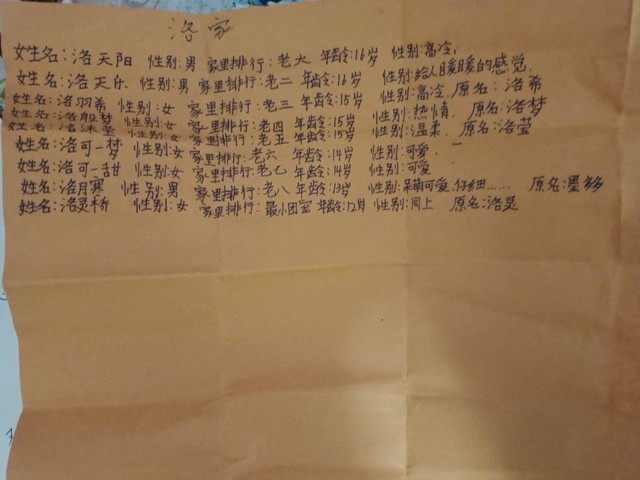 洛家
女生名:洛天阳 性别:男 家里排行:老大 年龄:16岁 性别:高冷,
女生名:洛天乐 性别:男 家里排行:老二 年龄:16岁 性别:给人暖暖的感觉
女生名:洛羽希 性别:女 家里排行:老三 年龄:15岁 性别:高冷.原名:洛希
女生名:洛 梦 性别:女 家里排行:老四 年龄:15岁 性别:热情. 原名:洛梦
女生名:洛 莹 性别:女 家里排行:老五 年龄:15岁 性别:温柔.原名:洛莹
女生名:洛可一梦 性别:女 家里排行:老六 年龄:14岁 性别:可爱.
女生名:洛可一甜 性别:女 家里排行:老七 年龄:14岁 性别:可爱
女生名:洛月寒 性别:男 家里排行:老八 年龄:13岁 性别:呆萌可爱.仔细…… 原名:墨多多
女生名:洛灵桥 性别:女 家里排行:最小团宝 年龄:12岁 性别:同上 原名:洛灵